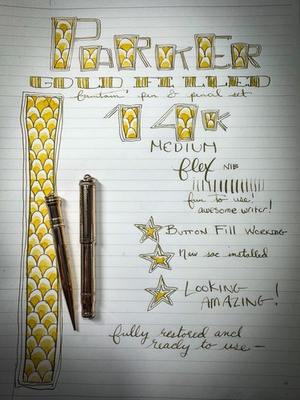 PARKER
GOLD FILLED
fountain pen & pencil set
14K
MEDIUM
flex NIB
fun to use!
awesome writer!
BUTTON FILL WORKING
New sac installed
LOOKING
AMAZING!
fully restored and
ready to use —